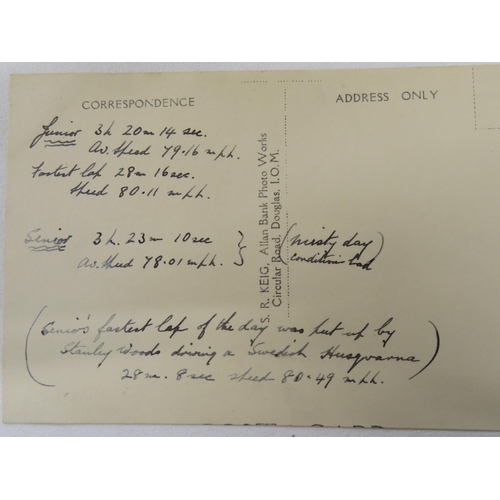 CORRESPONDENCE
ADDRESS ONLY
Junior 3h 20m 14 sec.
Av. Speed 79.16 m.p.h.
Fastest lap 28m 16sec.
Speed 80.11 m.p.h.
Senior 3h. 23m 10sec
Av. Speed 78.01 m.p.h.
(misty day
condition bad)
(Senio's fastest lap of the day was put up by
Stanley Woods driving a "Swedish Husqvarna
28m. 8sec speed 80.49 m.p.h.)
S. R. KEIG, Allan Bank Photo Works
Circular Road, Douglas, I.O.M.
POST CARD